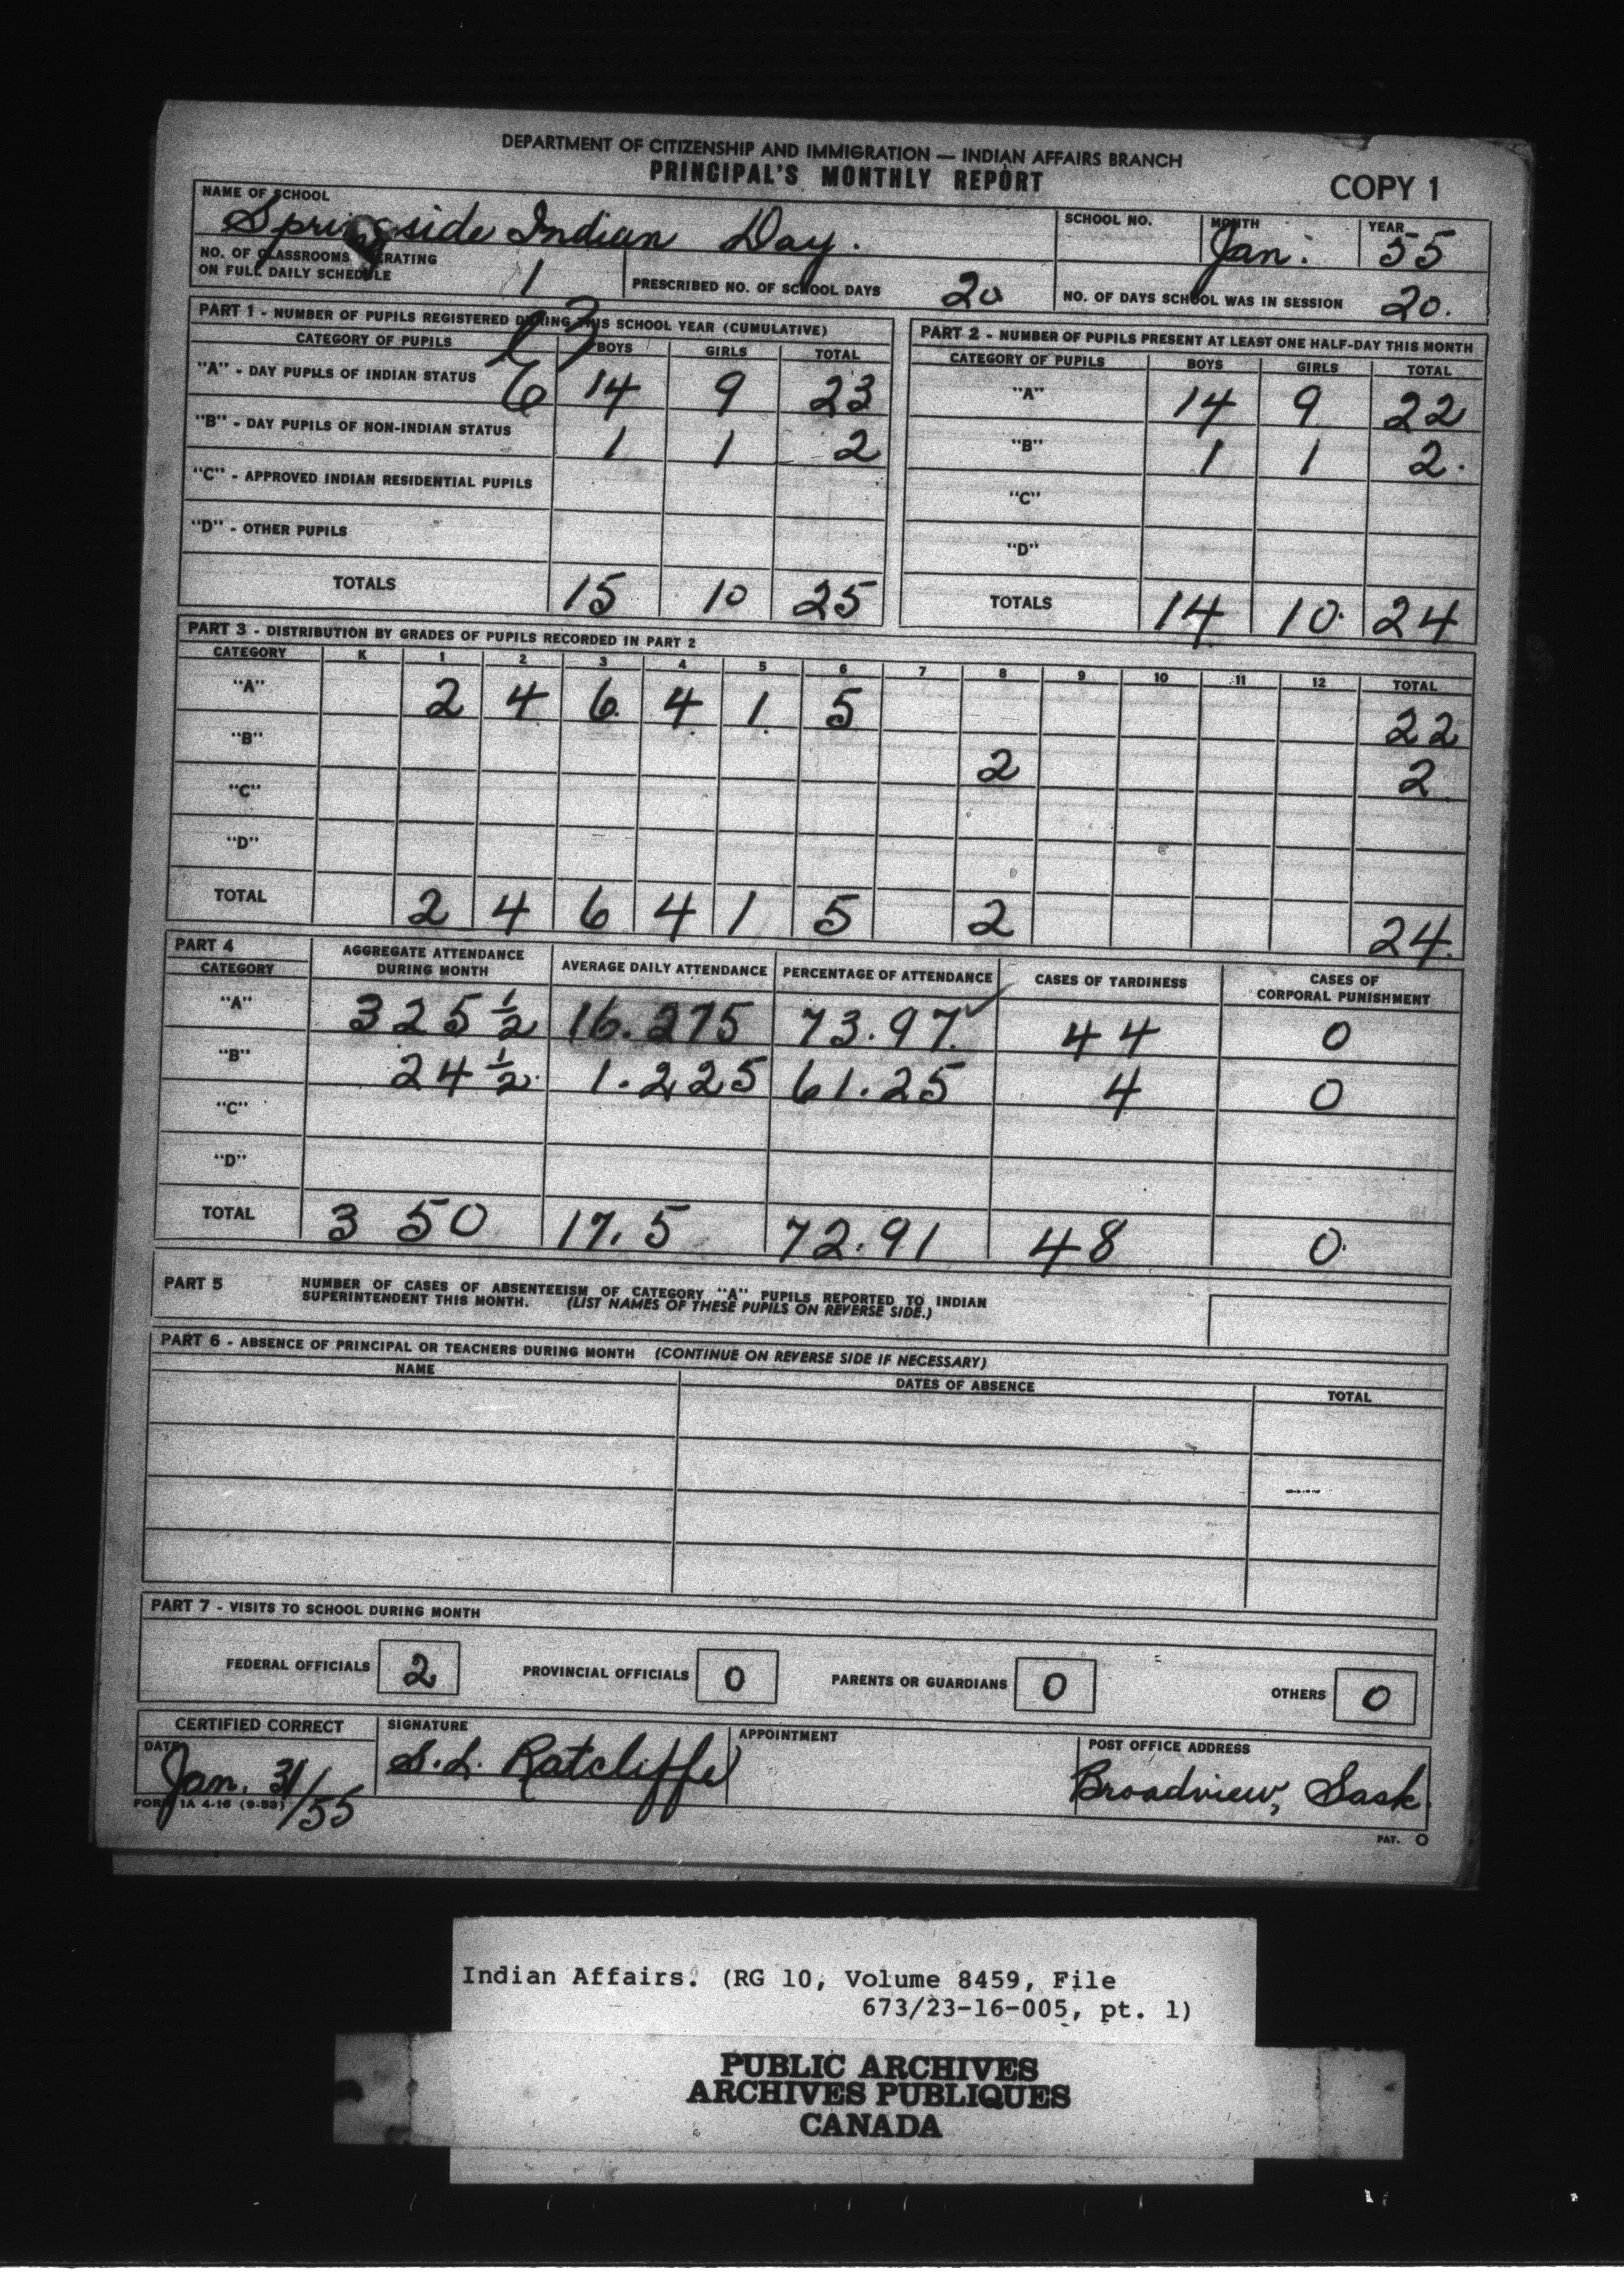 DEPARTMENT OF CITIZENSHIP AND IMMIGRATION — INDIAN AFFAIRS BRANCH
PRINCIPAL'S MONTHLY REPORT
COPY 1
NAME OF SCHOOL SCHOOL NO. MONTH YEAR
Springside Indian Day. Jan. 55
NO. OF CLASSROOMS OPERATING
ON FULL DAILY SCHEDULE 1 PRESCRIBED NO. OF SCHOOL DAYS 20 NO. OF DAYS SCHOOL WAS IN SESSION 20.
PART 1 - NUMBER OF PUPILS REGISTERED DURING THIS SCHOOL YEAR (CUMULATIVE)
CATEGORY OF PUPILS BOYS GIRLS TOTAL
"A" - DAY PUPILS OF INDIAN STATUS 14 9 23
"B" - DAY PUPILS OF NON-INDIAN STATUS 1 1 2
"C" - APPROVED INDIAN RESIDENTIAL PUPILS
"D" - OTHER PUPILS
TOTALS 15 10 25
PART 2 - NUMBER OF PUPILS PRESENT AT LEAST ONE HALF-DAY THIS MONTH
CATEGORY OF PUPILS BOYS GIRLS TOTAL
"A" 14 9 22
"B" 1 1 2.
"C"
"D"
TOTALS 14 10. 24
PART 3 - DISTRIBUTION BY GRADES OF PUPILS RECORDED IN PART 2
CATEGORY K 1 2 3 4 5 6 7 8 9 10 11 12 TOTAL
"A" 2 4 6 4 1 5 22
"B" 2 2
"C"
"D"
TOTAL 2 4 6 4 1 5 2 24.
PART 4
CATEGORY AGGREGATE ATTENDANCE DURING MONTH AVERAGE DAILY ATTENDANCE PERCENTAGE OF ATTENDANCE CASES OF TARDINESS CASES OF CORPORAL PUNISHMENT
"A" 325½ 16.275 73.97 44 0
"B" 24½ 1.225 61.25 4 0
"C"
"D"
TOTAL 350 17.5 72.91 48 0
PART 5 NUMBER OF CASES OF ABSENTEEISM OF CATEGORY "A" PUPILS REPORTED TO INDIAN
SUPERINTENDENT THIS MONTH. (LIST NAMES OF THESE PUPILS ON REVERSE SIDE.)
PART 6 - ABSENCE OF PRINCIPAL OR TEACHERS DURING MONTH (CONTINUE ON REVERSE SIDE IF NECESSARY)
NAME DATES OF ABSENCE TOTAL
PART 7 - VISITS TO SCHOOL DURING MONTH
FEDERAL OFFICIALS 2 PROVINCIAL OFFICIALS 0 PARENTS OR GUARDIANS 0 OTHERS 0
CERTIFIED CORRECT SIGNATURE APPOINTMENT POST OFFICE ADDRESS
DATE
Jan. 31/55 S.L. Ratcliffe Broadview, Sask.
FORM 1A 4-16 (9-53)
PAT. O
Indian Affairs. (RG 10, Volume 8459, File
673/23-16-005, pt. 1)
PUBLIC ARCHIVES
ARCHIVES PUBLIQUES
CANADA